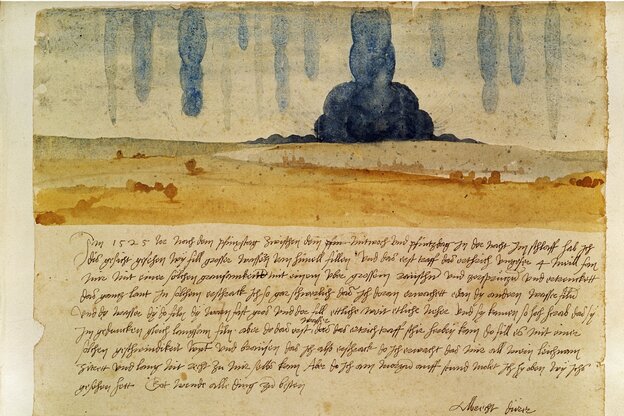 Im 1525 Jor noch dem pfinxstag zwischen dem Mitwoch und pfintzdag in der nacht im schlaff hab ich
dis gesicht gesehen wy fill grosser wassern vom himell fillen Und das erst traff das erthrich ungefer 4 meill fan
mir mit einer solchen grausamkeitt mit einem uber grossem raüschn und zersprützn und ertrenckett
das gantz lant In solchem erschrack ich so gar schwerlich das ich doran erwachett e dan dy andern wasser filn
Und dy wasser dy do filn dy warn fast gros und der fill ettliche weit etliche neher und sy kamen so hoch herab das sy
im gedancken gleich langsam filn aber do das erst wasser das das ertrich traff schir herbey kam do fill es mit einer
solchen geschwindikeit wynt und braüsen das ich also erschrack do ich erwacht das mir all mein leichnam
zitrett und lang nit recht zu mir selbs kam Aber do ich am morgen auff stund molet ich hy oben wy ichs
gesehen hett Got wende alle ding zu besten
Albrecht dürer